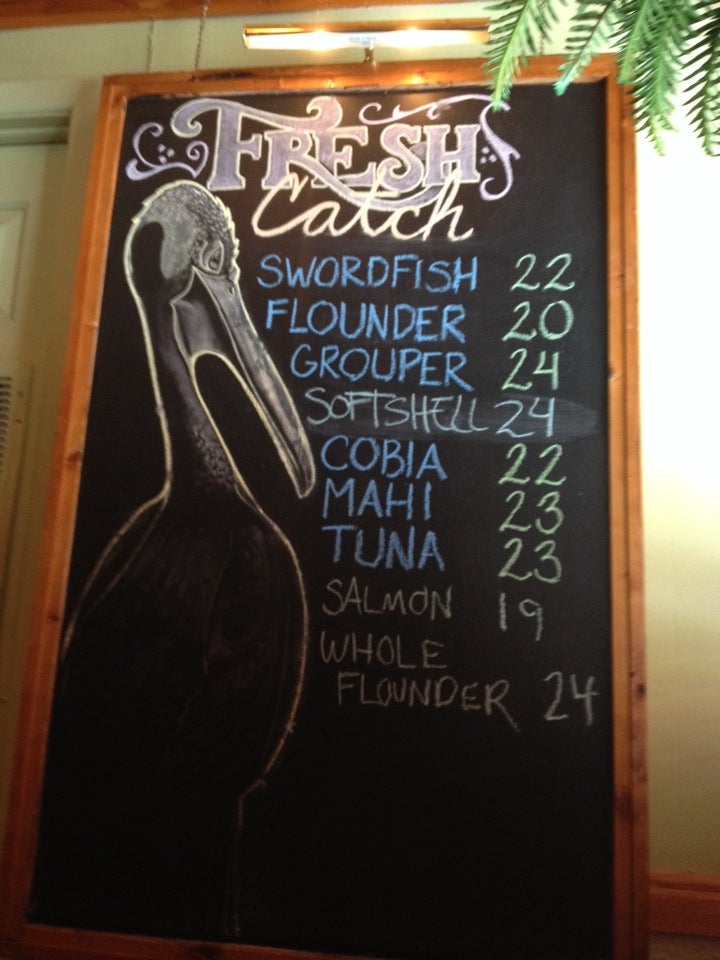 FRESH
Catch
SWORDFISH 22
FLOUNDER 20
GROUPER 24
SOFTSHELL 24
COBIA 22
MAHI 23
TUNA 23
SALMON 19
WHOLE
FLOUNDER 24